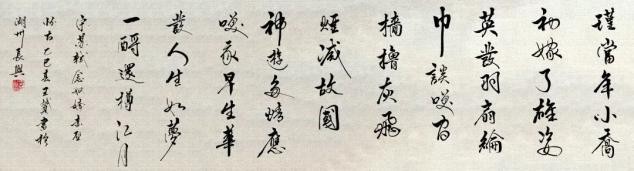 瑾當年小喬
初嫁了雄姿
英發羽扇綸
巾談咲間
檣櫓灰飛
煙滅故國
神遊多情應
咲我早生華
發人生如夢
一酹還樽江月
宋蘇軾念奴嬌赤壁
懷古乙巳春王書於
湖州長興